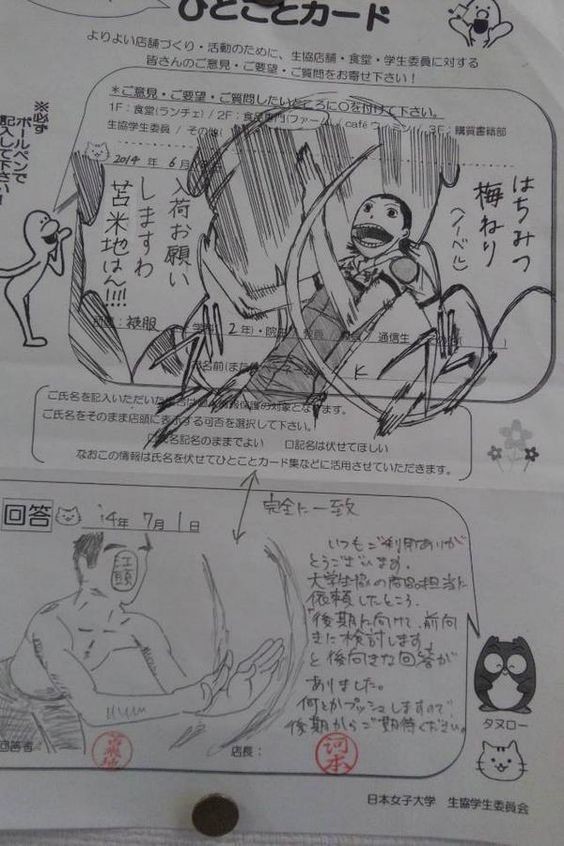 ひとことカード
よりよい店舗づくり・活動のために、生協店舗・食堂・学生委員に対する
皆さんのご意見・ご要望・ご質問をお寄せ下さい！
※必ず
ボールペンで
記入して下さい！
＊ご意見・ご要望・ご質問したいところに○を付けて下さい。
1F：食堂(ランチェ) / 2F：食
ファーム / café
3F：購買書籍部
生協学生委員 / その他
2014 年 6月
はちみつ
梅ねり
(ノーベル)
入荷お願い
しますわ
苫米地はん!!!!
被服
2年)・院
通信生
K
ご氏名を記入いただいた
の対象となります。
ご氏名をそのまま店頭に表示する可否を選択して下さい。
氏名記名のままでよい □記名は伏せてほしい
なおこの情報は氏名を伏せてひとことカード集などに活用させていただきます。
完全に一致
回答
14年 7月 1日
江頭
いつもご利用ありが
とうございます。
大学生協の商品担当に
依頼したところ、
「後期に向けて、前向
きに検討します」
と後向きな回答が
ありました。
何とかプッシュしますので、
後期からご期待ください。
タヌロー
回答者
店長：
河本
日本女子大学 生協学生委員会